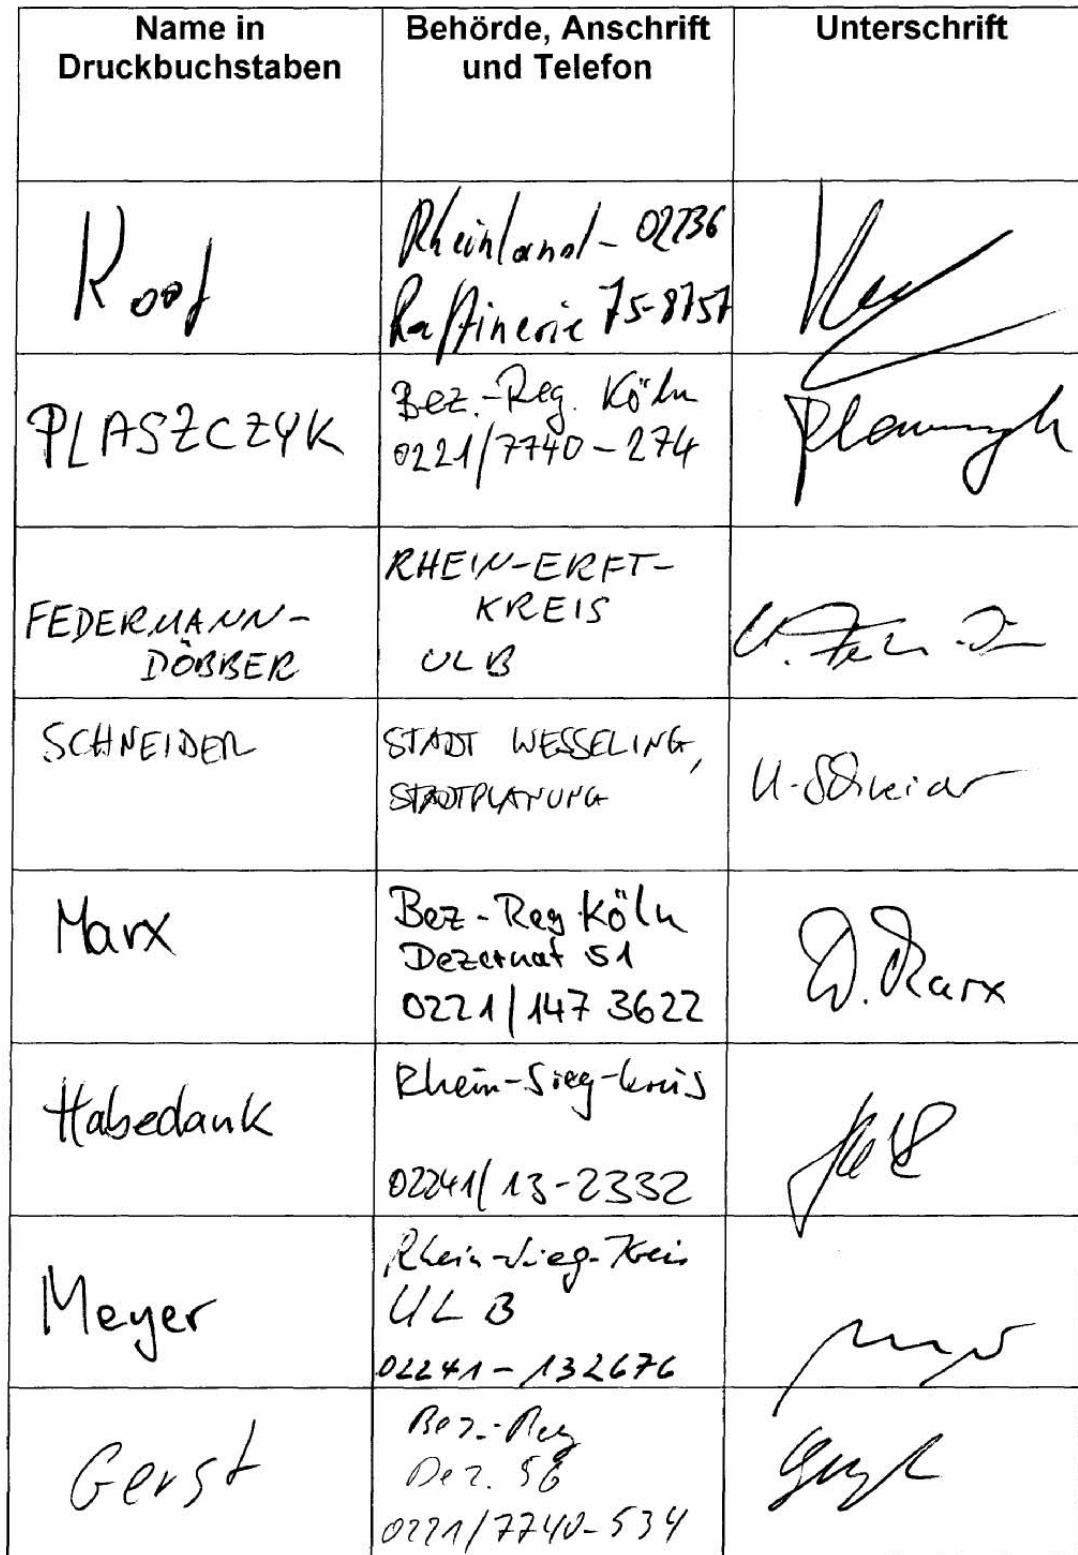 Name in
Druckbuchstaben
Behörde, Anschrift
und Telefon
Unterschrift
Koof
Rheinland- 02236
Raffinerie 75-8757
PLASZCZYK
Bez.-Reg. Köln
0221/7740-274
Plaszczyk
FEDERMANN-
DÖBBER
RHEIN-ERFT-
KREIS
ULB
SCHNEIDER
STADT WESSELING,
STADTPLANUNG
U. Schneider
Marx
Bez-Reg Köln
Dezernat 51
0221/147 3622
D. Marx
Habedank
Rhein-Sieg-Kreis
02241/13-2332
Meyer
Rhein-Sieg-Kreis
ULB
02241-132676
Gerst
Bez.-Reg
Dez. 56
0221/7740-534